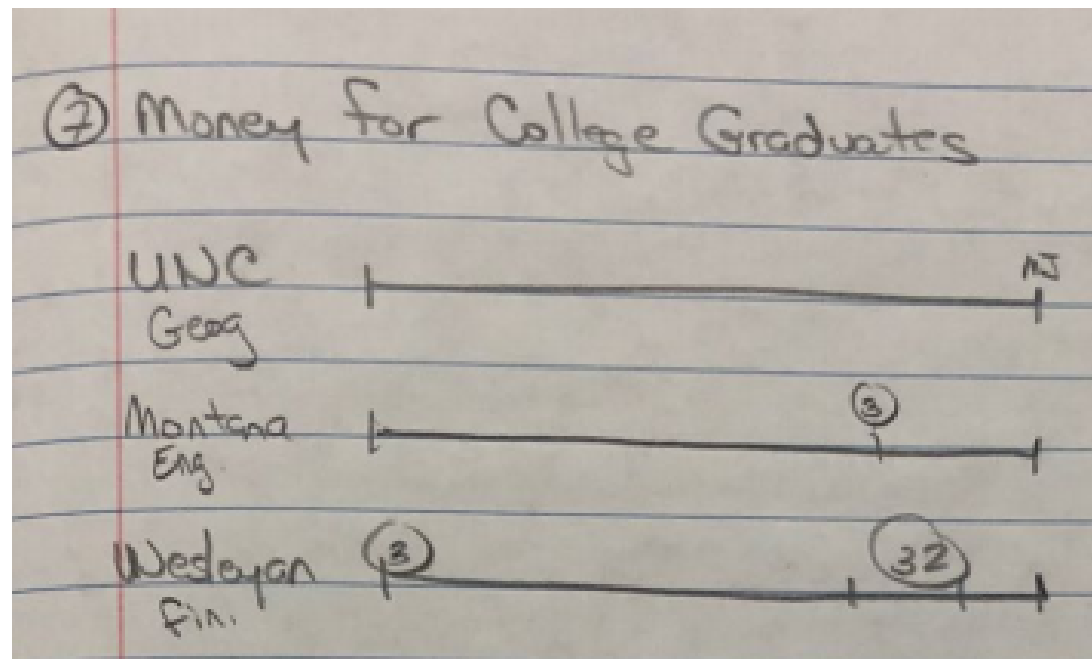 ⑦ Money for College Graduates
UNC
MJ
Geog
Montana
③
Eng.
Wesleyan
③
32
Fin.